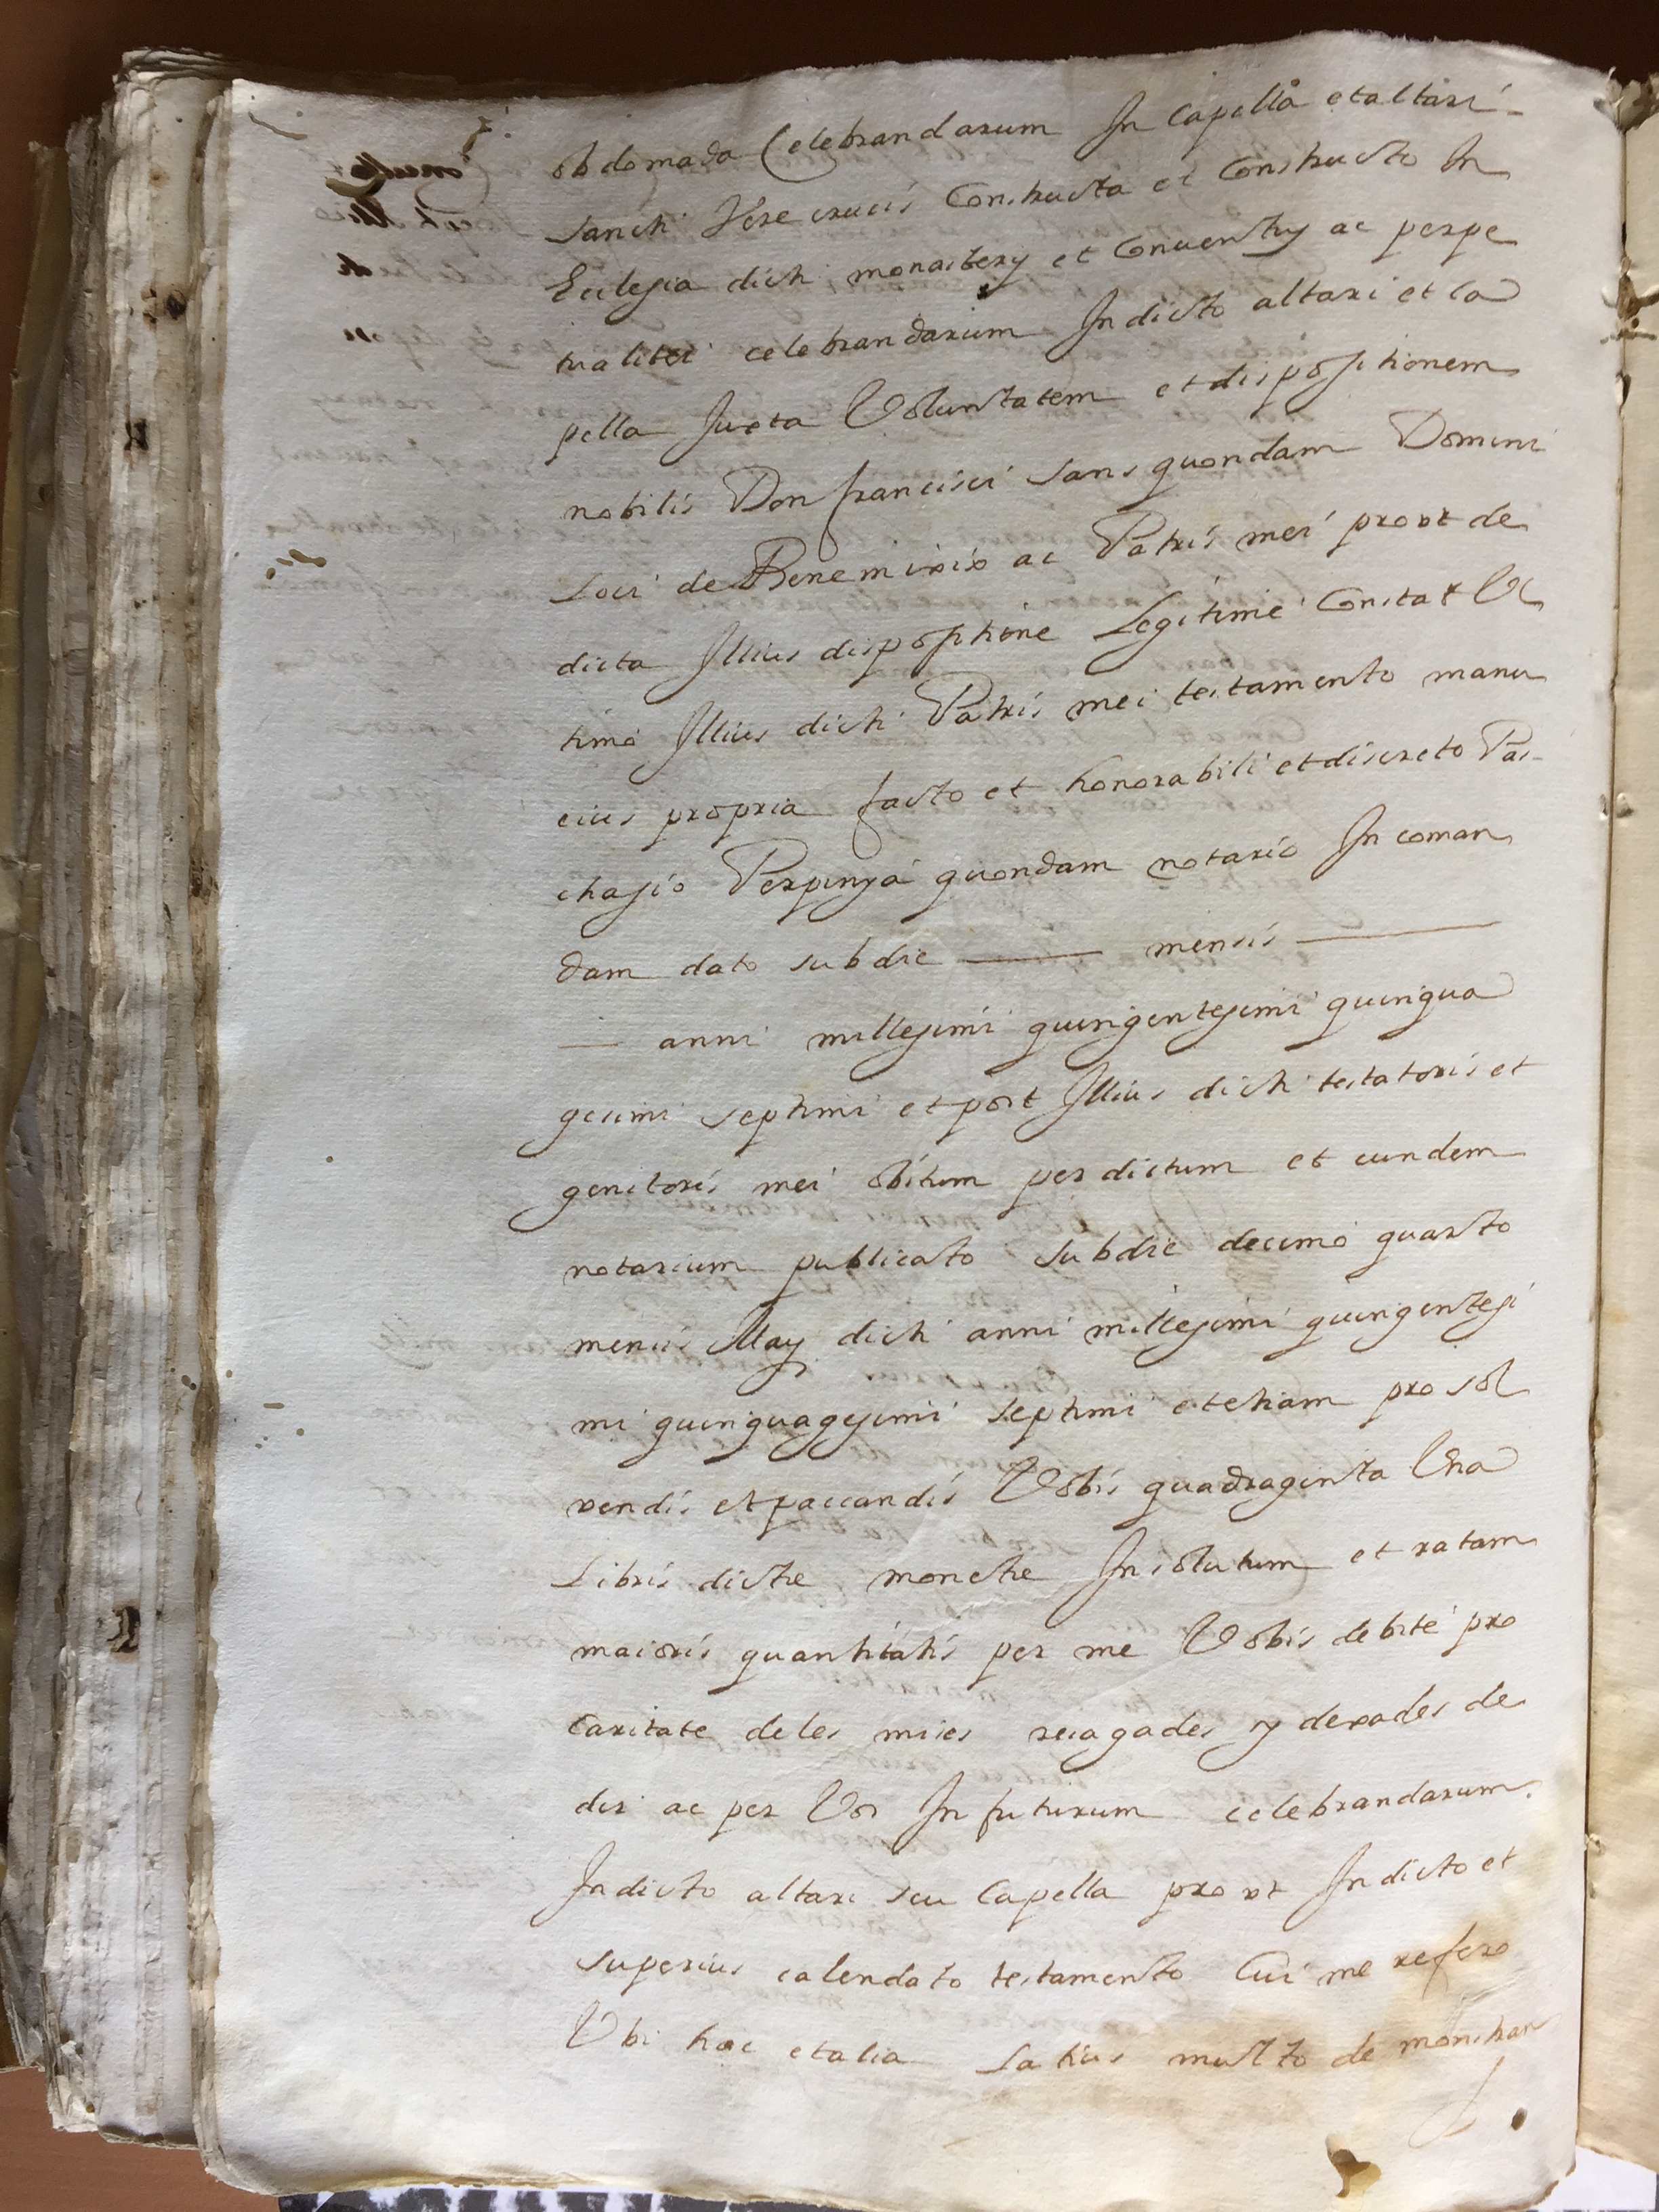 obdomada Celebrandarum In Capella et altari
Sancti Vere crucis Constructa et Constructo In
Eclesia dicti monastery et Conuentus ac perpe
tualiter celebrandarum In dicto altari et ca
pella Juxta Voluntatem et dispositionem
nobilis Don francisci sans quondam Domini
Loci de Benemixix ac Patris mei prout de
dicta Illius dispositione Legitime Constat Vl
timo Illius dicti Patris mei testamento manu
eius propria facto et honorabili et discreto Pas-
chasio Perpinya quondam notario In coman
dam dato sub die —— mensis ——
— anni millesimi quingentesimi quinqua
gesimi septimi et post Illius dicti testatoris et
genitoris mei obitum per dictum et eundem
notarium publicato sub die decimo quarto
mensis May dicti anni millesimi quingentesi
mi quinquagesimi septimi et etiam pro sol
vendis et paccandis Vobis quadraginta Vna
Libris dicte monete In solutum et ratam
maioris quantitatis per me Vobis debite pro
Caritate de les mises recagades y dexades de
dir ac per Vos In futurum celebrandarum
In dicto altari seu Capella prout In dicto et
superius calendato testamento Cui me refero
Vbi hec et alia Latius multo demonstran